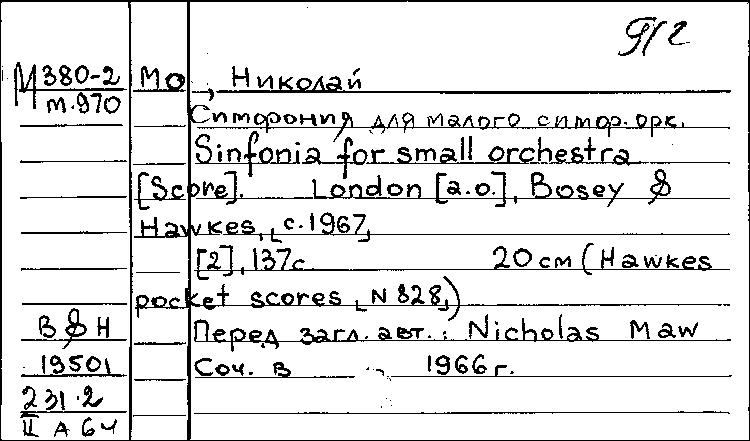 М 380-2
т.970
Мо, Николай
Симфония для малого симф. орк.
Sinfonia for small orchestra
[Score]. London [a.o.], Bosey &
Hawkes, [c.1967]
[2], 137 с. 20 см (Hawkes
pocket scores [N 828])
B & H
Перед загл. авт.: Nicholas Maw
19501
Соч. в 1966 г.
231.2
II А 64